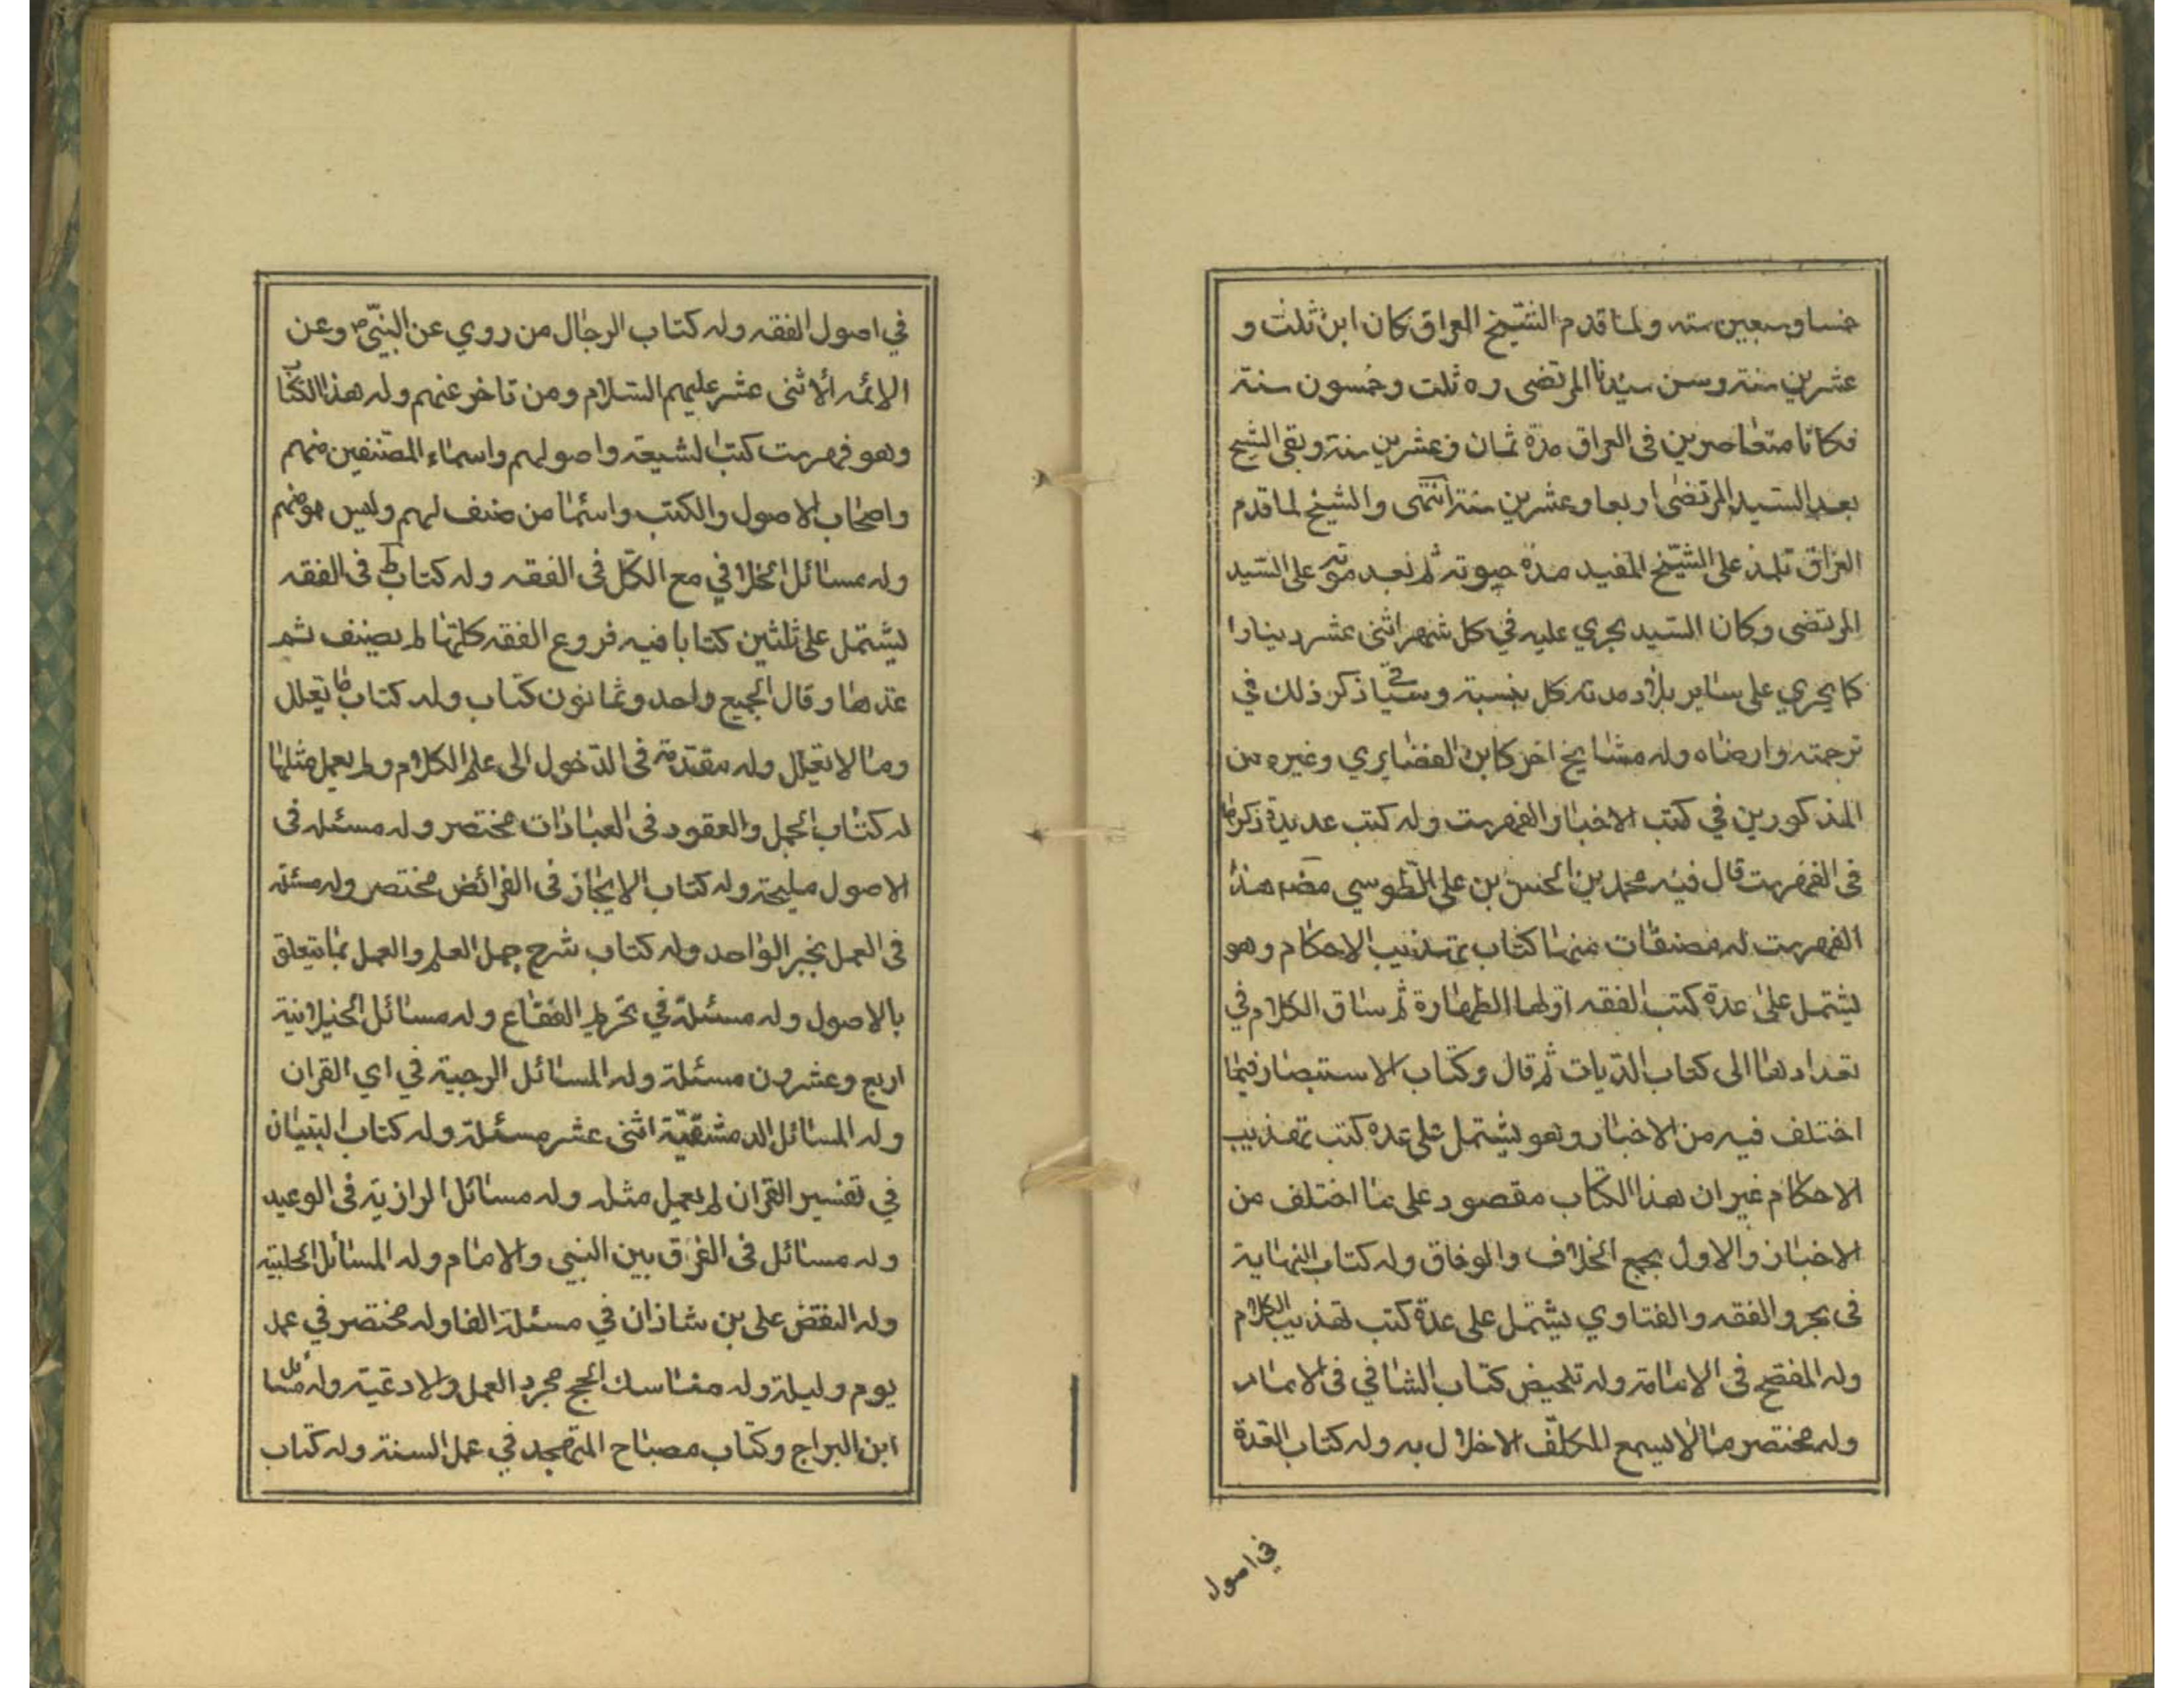 خمسا وسبعين سنه ولما قدم الشيخ العراق كان ابن ثلث و
عشرين سنة وسن سيدنا المرتضى ره ثلث وخمسون سنة
فكانا متعاصرين فى العراق مدة ثمان وعشرين سنة وبقى الشيخ
بعد السيد المرتضى اربعا وعشرين سنة انتهى والشيخ لما قدم
العراق تلمذ على الشيخ المفيد مدة حيوته ثم بعد موته على السيد
المرتضى وكان السيد يجري عليه في كل شهر اثنى عشر دينارا
كما يجري على ساير تلامدته كل بنسبة وسياتي ذكر ذلك في
ترجمته وارضاه وله مشايخ اخر كابن الغضايري وغيره من
المذكورين في كتب الاخبار والفهرست وله كتب عديدة ذكرها
فى الفهرست قال فيه محمد بن الحسن بن على الطوسي مصنف هذا
الفهرست له مصنفات منها كتاب تهذيب الاحكام وهو
يشتمل على عدة كتب الفقه اولها الطهارة ثم ساق الكلام في
تعدادها الى كتاب الديات ثم قال وكتاب الاستبصار فيما
اختلف فيه من الاخبار وهو يشتمل على عدة كتب تهذيب
الاحكام غير ان هذا الكتاب مقصور على ما اختلف من
الاخبار والاول يجمع الخلاف والوفاق وله كتاب النهاية
فى مجرد الفقه والفتاوي يشتمل على عدة كتب تهذيب الكلام
وله المفصح فى الامامة وله تلخيص كتاب الشافي فى الامامه
وله مختصر ما لا يسع المكلف الاخلال به وله كتاب العدة
في اصول
في اصول الفقه وله كتاب الرجال من روي عن النبي ص وعن
الائمه الاثنى عشر عليهم السلام ومن تاخر عنهم وله هذا الكتاب
وهو فهرست كتب الشيعة واصولهم واسماء المصنفين منهم
واصحاب الاصول والكتب واسما من صنف لهم وليس هو منهم
وله مسائل الخلافي مع الكل فى الفقه وله كتاب ط فى الفقه
يشتمل على ثلثين كتابا فيه فروع الفقه كلها لم يصنف ثم
عدها وقال الجميع واحد وثمانون كتاب وله كتاب ما يعلل
وما لا يعلل وله مقدمة فى الدخول الى علم الكلام ولم يعمل مثلها
له كتاب الجمل والعقود فى العبادات مختصر وله مسئله فى
الاصول مليحة وله كتاب الايجاز فى الفرائض مختصر وله مسئلة
فى العمل بخبر الواحد وله كتاب شرح جمل العلم والعمل بما يتعلق
بالاصول وله مسئلة في تحريم الفقاع وله مسائل الخيلانية
اربع وعشرون مسئلة وله المسائل الرجبية في اي القران
وله المسائل الدمشقية اثنى عشر مسئلة وله كتاب التبيان
في تفسير القران لم يعمل مثله وله مسائل الرازية فى الوعيد
وله مسائل فى الفرق بين النبي والامام وله المسائل الحلبية
وله النقض على بن شاذان في مسئلة الغار وله مختصر في عمل
يوم وليلة وله مناسك الحج مجرد العمل والادعية وله مسائل
ابن البراج وكتاب مصباح المتهجد في عمل السنة وله كتاب